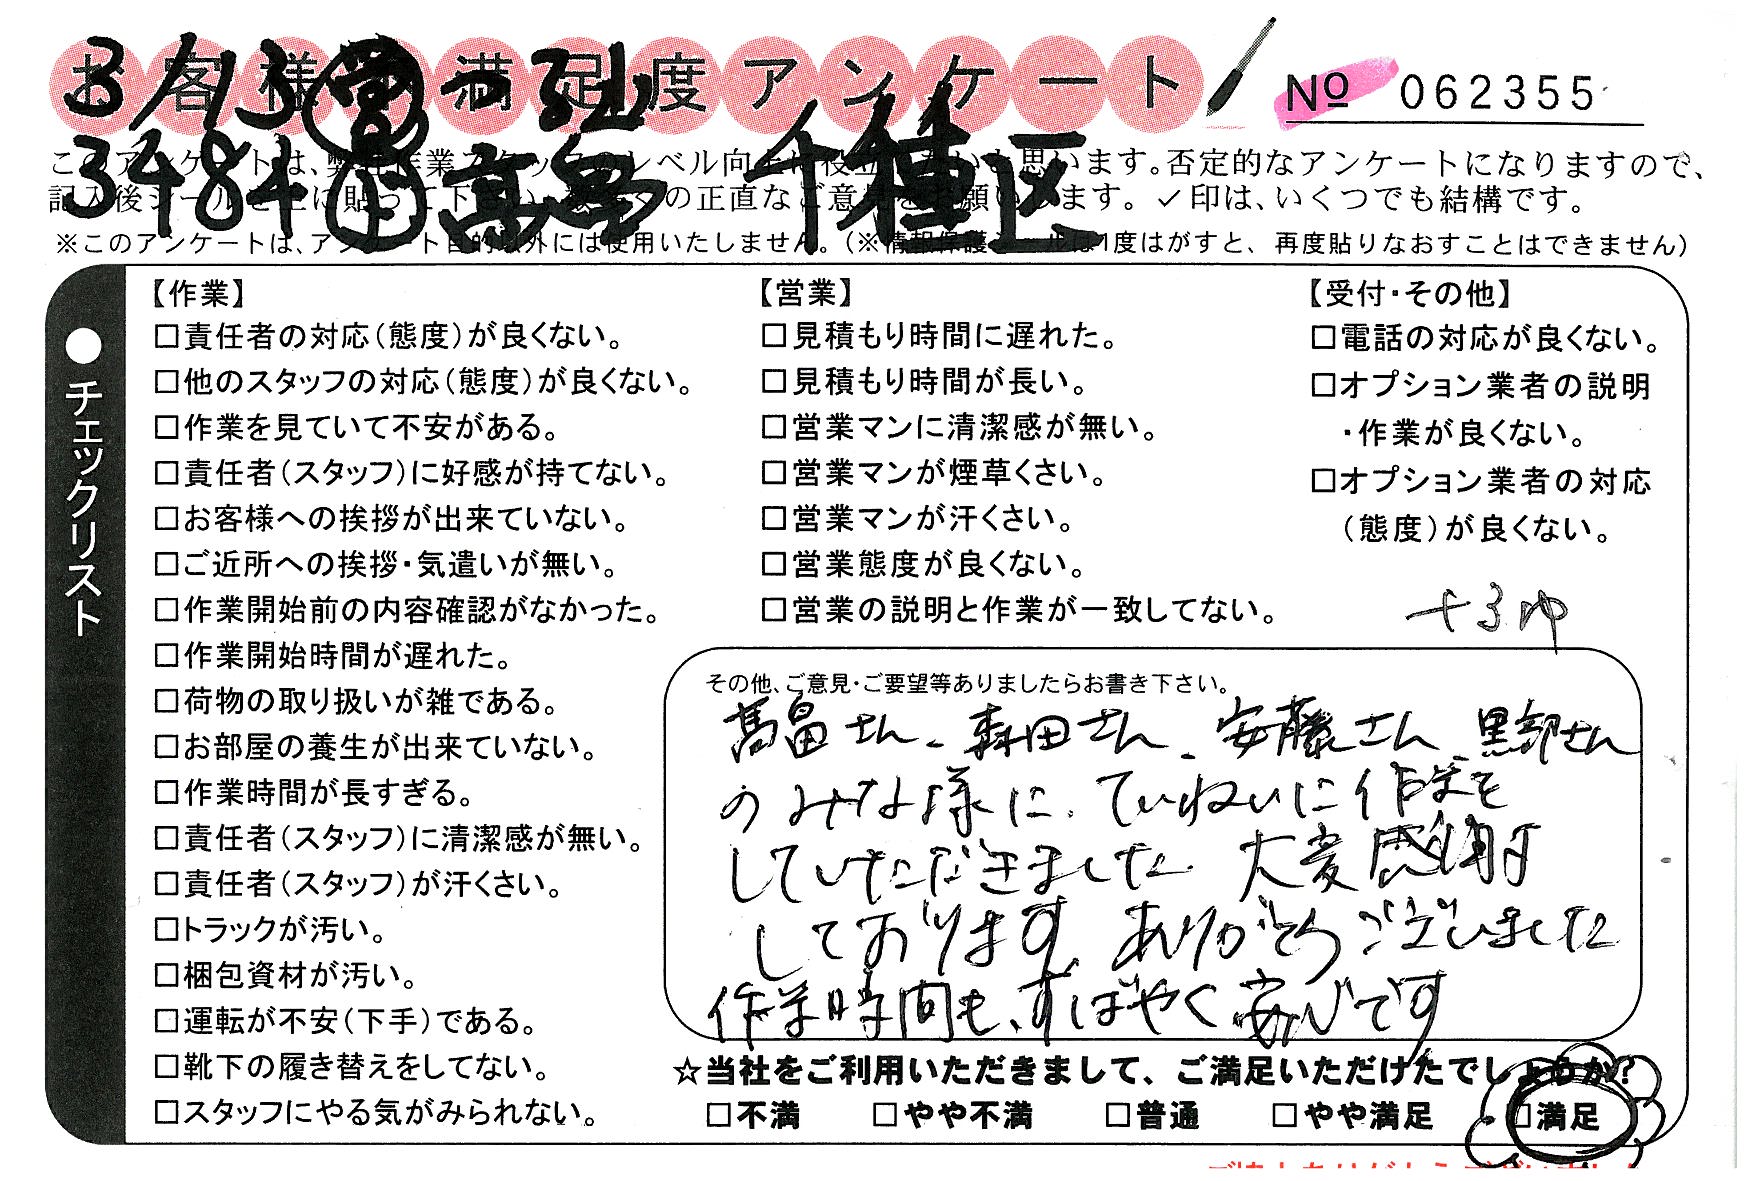 お客様満足度アンケート
№ 062355
3/13 営 一社
3484 上 高畠 千種区
このアンケートは、弊社作業スタッフのレベル向上に役立てたいと思います。否定的なアンケートになりますので、
記入後シールを上に貼って下さい。数多くの正直なご意見をお願いします。✓印は、いくつでも結構です。
※このアンケートは、アンケート目的以外には使用いたしません。(※情報保護シールは1度はがすと、再度貼りなおすことはできません)
●チェックリスト
【作業】
□責任者の対応(態度)が良くない。
□他のスタッフの対応(態度)が良くない。
□作業を見ていて不安がある。
□責任者(スタッフ)に好感が持てない。
□お客様への挨拶が出来ていない。
□ご近所への挨拶・気遣いが無い。
□作業開始前の内容確認がなかった。
□作業開始時間が遅れた。
□荷物の取り扱いが雑である。
□お部屋の養生が出来ていない。
□作業時間が長すぎる。
□責任者(スタッフ)に清潔感が無い。
□責任者(スタッフ)が汗くさい。
□トラックが汚い。
□梱包資材が汚い。
□運転が不安(下手)である。
□靴下の履き替えをしてない。
□スタッフにやる気がみられない。
【営業】
□見積もり時間に遅れた。
□見積もり時間が長い。
□営業マンに清潔感が無い。
□営業マンが煙草くさい。
□営業マンが汗くさい。
□営業態度が良くない。
□営業の説明と作業が一致してない。
【受付・その他】
□電話の対応が良くない。
□オプション業者の説明
・作業が良くない。
□オプション業者の対応
(態度)が良くない。
その他、ご意見・ご要望等ありましたらお書き下さい。
髙畠さん、森田さん、安藤さん、黒部さん
のみな様に、ていねいに作業を
していただきました 大変感謝
しております ありがとうございました
作業時間も、すばやく安心です
☆当社をご利用いただきまして、ご満足いただけたでしょうか?
□不満 □やや不満 □普通 □やや満足 □満足